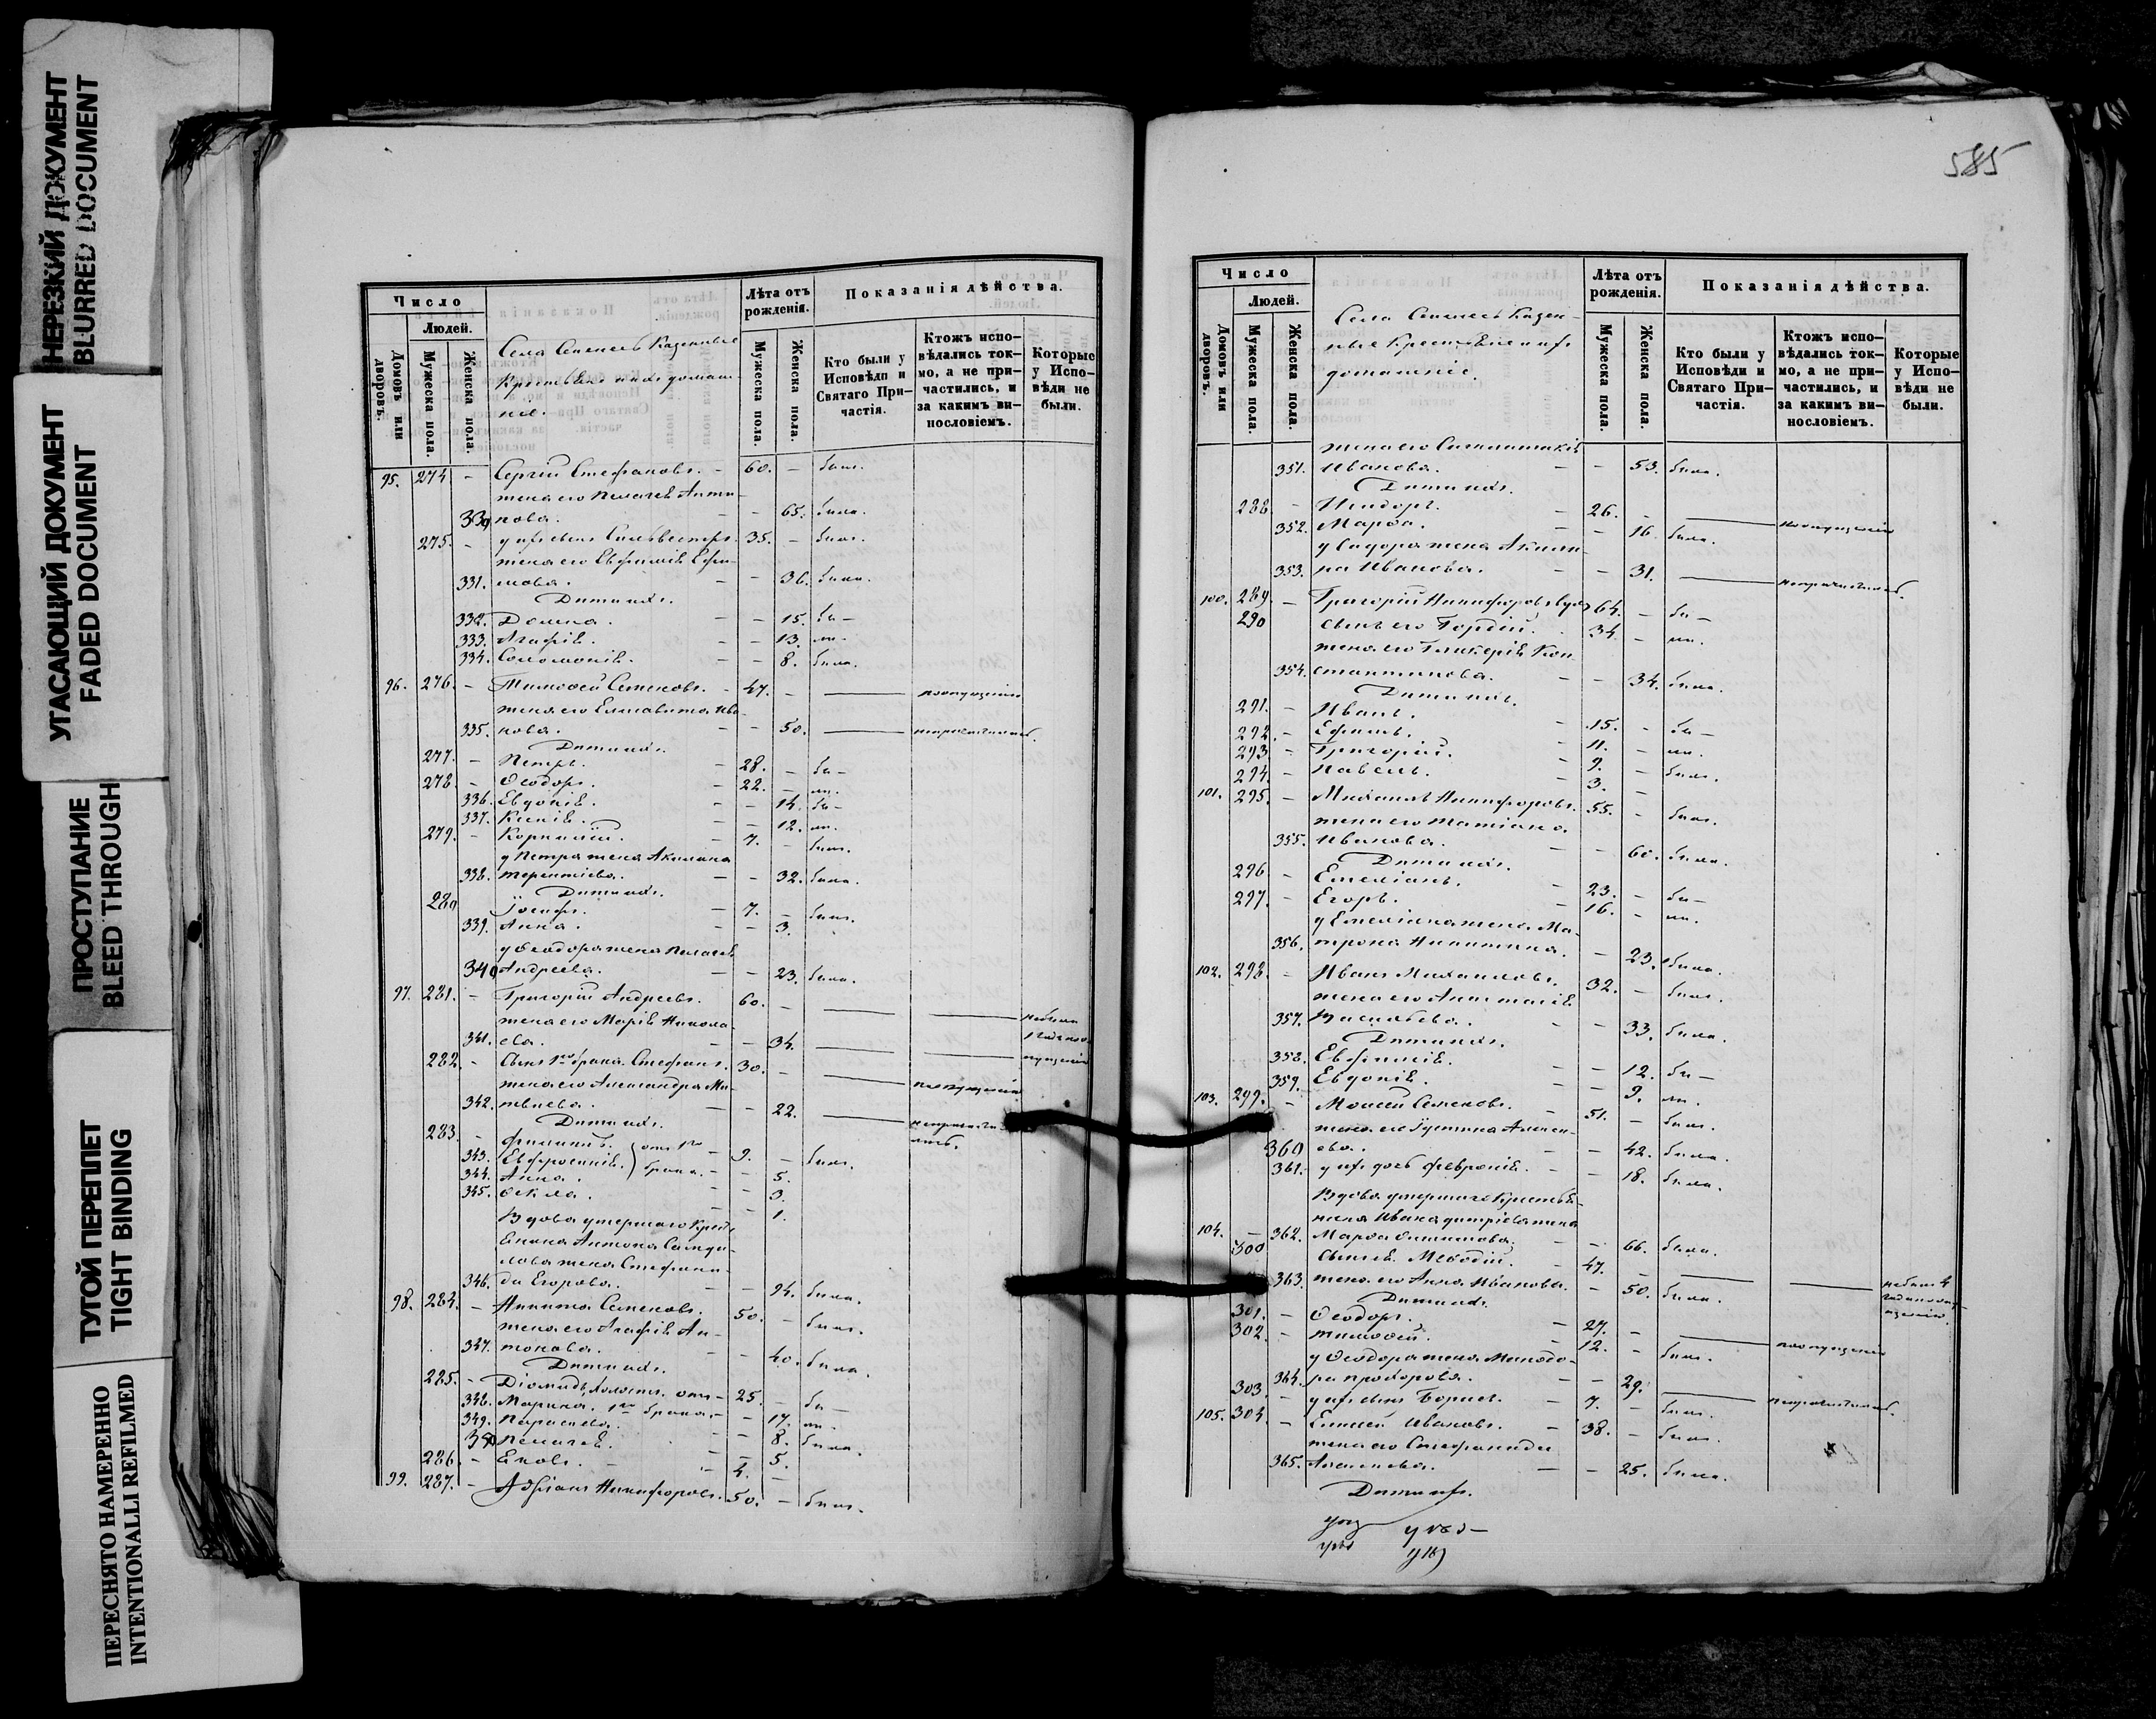 НЕРЕЗКИЙ ДОКУМЕНТ
BLURRED DOCUMENT
УГАСАЮЩИЙ ДОКУМЕНТ
FADED DOCUMENT
ПРОСТУПАНИЕ
BLEED THROUGH
ТУГОЙ ПЕРЕПЛЕТ
TIGHT BINDING
ПЕРЕСНЯТО НАМЕРЕННО
INTENTIONALLI REFILMED
Число
Людей.
Домовъ или дворовъ.
Мужеска пола.
Женска пола.
Села Казенные
Крестьяне и ихъ домаш-
ніе.
Лѣта отъ рожденія.
Мужеска пола.
Женска пола.
Показанія дѣйства.
Кто были у Исповѣди и Святаго Причастія.
Ктожъ испо-вѣдались ток-мо, а не при-частились, и за какимъ ви-нословіемъ.
Которые у Испо-вѣди не были.
95. 274 - Сергій Стефановъ. - 60. - былъ.
жена его Пелагея
330 нова. - - 65. была.
275. - у ихъ сынъ Сильвестръ. 35. - былъ.
жена его Евфимія Ефи-
331. мова. - - 36. была.
Дити ихъ.
332. Домна. - - 15. бы-
333. Агафія. - - 13. ли.
334. Соломонія. - - 8. была.
96. 276. - Тимофей Семеновъ. - 47. - — по опущенію
жена его Елисавета Ива-
335. нова. - - 50. —
Дити ихъ.
277. - Петръ. - 28. - бы-
278. - Ѳеодоръ. - 22. - ли.
336. Евдокія. - - 14. бы-
337. Ксенія. - - 12. ли.
279. - Корнилій. - 7. - былъ.
у Петра жена Акилина
338. терентіева. - - 32. была.
Дити ихъ.
280 Іосифъ. - 7. - былъ.
339. Анна. - - 3.
у Ѳеодора жена Пелагея
340 Андреева. - - 23. была.
97. 281. - Григорій Андреевъ. 60. - — —
жена его Марія Никола-
341. ева. - - 34. — —
282 - Сынъ 1го брака Стефанъ. 30. - — по опущенію
жена его Александра Ма-
342. твѣева. - - 22. —
Дити ихъ.
283. - Филиппъ. - 9. - былъ.
343. Евфросинія. отъ 1го брака. - - 5.
344. Анна. - - 3.
345. Ѳекла. - - 1.
Вдова умершаго Крест-
янина Антона Самуи-
лова жена Стефани-
346. да Егорова. - - 94. была.
98. 284. - Никита Семеновъ. 50. - былъ.
жена его Агафія Ан-
347. тонова. - - 40. была.
Дити ихъ.
285. - Діомидъ отъ - 25. - бы-
348. Марина. 1го брака. - - 17. ли
349. Параскева. - - 8. была.
350 Пелагея. - - 5.
286. - Яковъ. - - 4. -
99. 287. - Адріанъ Никифоровъ. 50. - былъ.
585
Число
Людей.
Домовъ или дворовъ.
Мужеска пола.
Женска пола.
Села Казен-
ные Крестьяне и ихъ
домашніе.
Лѣта отъ рожденія.
Мужеска пола.
Женска пола.
Показанія дѣйства.
Кто были у Исповѣди и Святаго При-частія.
Ктожъ испо-вѣдались ток-мо, а не при-частились, и за какимъ ви-нословіемъ.
Которые у Испо-вѣди не были.
жена его
351. Иванова. - - 53. была.
Дити ихъ.
288. - 26. - — по опущенію
352. Марѳа. - - 16. была.
жена Акили-
353. на Иванова. - - 31. —
100. 289. - Григорій Никифоровъ 64. - бы-
290 сынъ его Гордій. 34. - ли.
жена его Гликерія Кон-
354. стантинова. - - 34. была.
Дити ихъ.
291. - Иванъ. - 15. - бы-
292. - Ефимъ. - 11. - ли.
293 - Григорій. - 9. - былъ.
294. - Павелъ. - 3. -
101. 295. - Михаилъ Никифоровъ. 55. - былъ.
жена его Татіана
355. Иванова. - - 60. была.
Дити ихъ.
296 - Емеліанъ. - 23. - бы-
297. - Егоръ. - 16. - ли.
у Емеліана жена Ма-
356. трона Никитина. - 23. была.
102. 298. - Иванъ Михаиловъ. 32. - былъ.
жена его Анастасія
357. Васильева. - - 33. была.
Дити ихъ.
358. Евфимія. - - 12. бы-
359. Евдокія. - - 9. ли.
103. 299. - Моисей Семеновъ. - 51. - былъ.
жена его Іустина Алексі-
360 ева. - - 42. была.
361. у ихъ дочь Февронія. - - 18. была.
Вдова умершаго Крестья-
нина Ивана жена
104. - 362. Марѳа - - 66. была.
300 Сынъ ея Меѳодій. - 47. - — —
363. жена его Анна Иванова. - 50. была.
Дити ихъ.
301. - Ѳеодоръ. - 27. - — по опущенію
302. - тимофей. - 12. - былъ.
у Ѳеодора жена Минодо-
364. ра прохорова. - - 29. —
303. - у ихъ сынъ Борисъ. - 7. - былъ.
105. 304. - Елисей Ивановъ. - 38. - былъ.
жена его Стефанида
365. Алексіева. - - 25. была.
Дити ихъ.